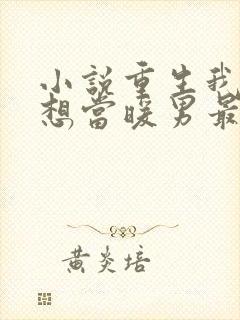 小說重生我
想當暖男最
黃炎培